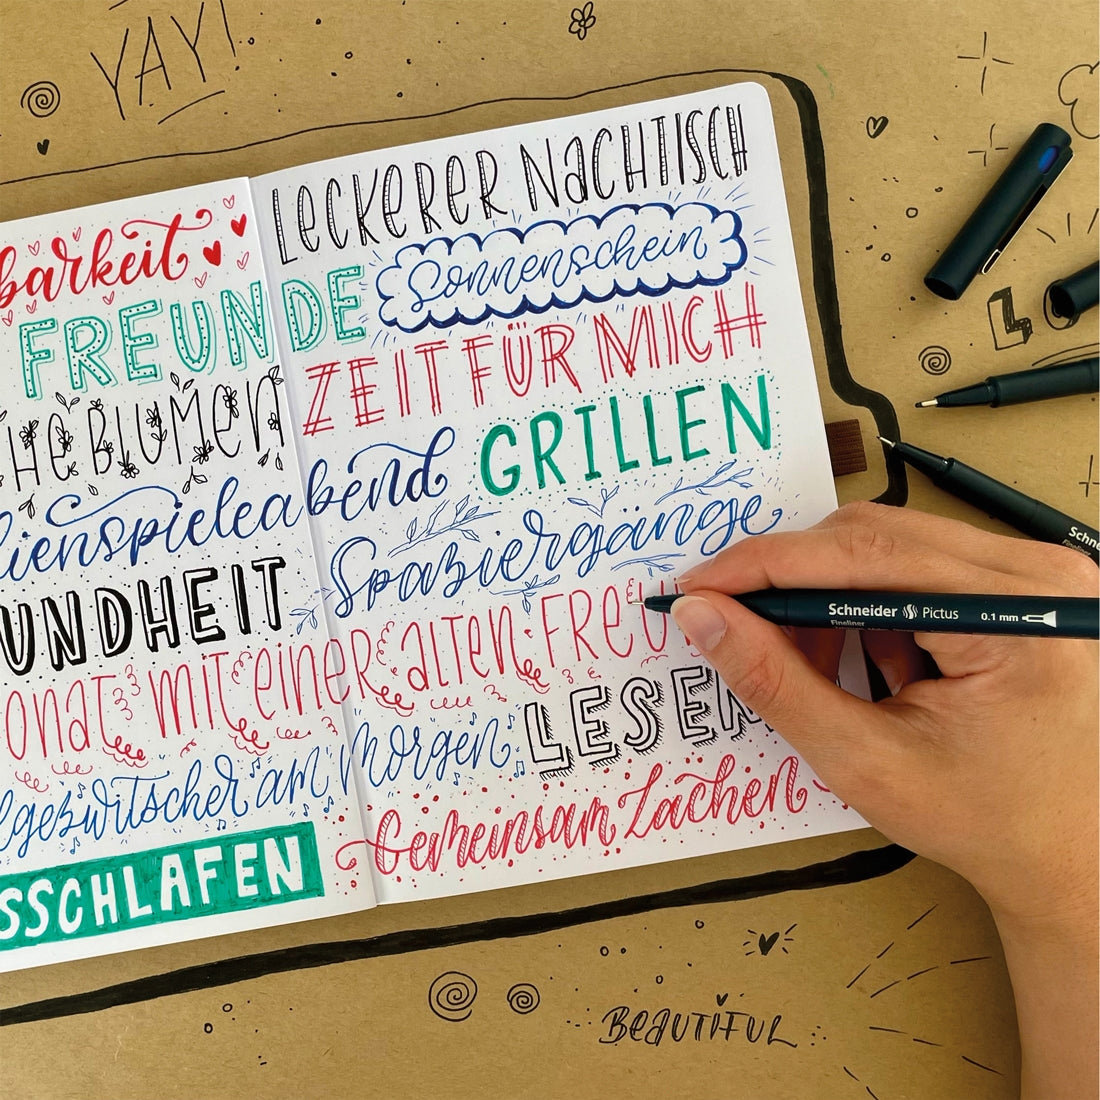 YAY!
LECKERER NACHTISCH
barkeit
Sonnenschein
FREUNDE
ZEIT FÜR MICH
HE BLUMEN
GRILLEN
lienspieleabend
Spaziergänge
UNDHEIT
onat mit einer alten FREU
LESEN
lgezwitscher am Morgen
Gemeinsam Lachen
SSCHLAFEN
Schneider Pictus 0.1 mm
Fineliner
Schne
Fineliner
BEAUTIFUL